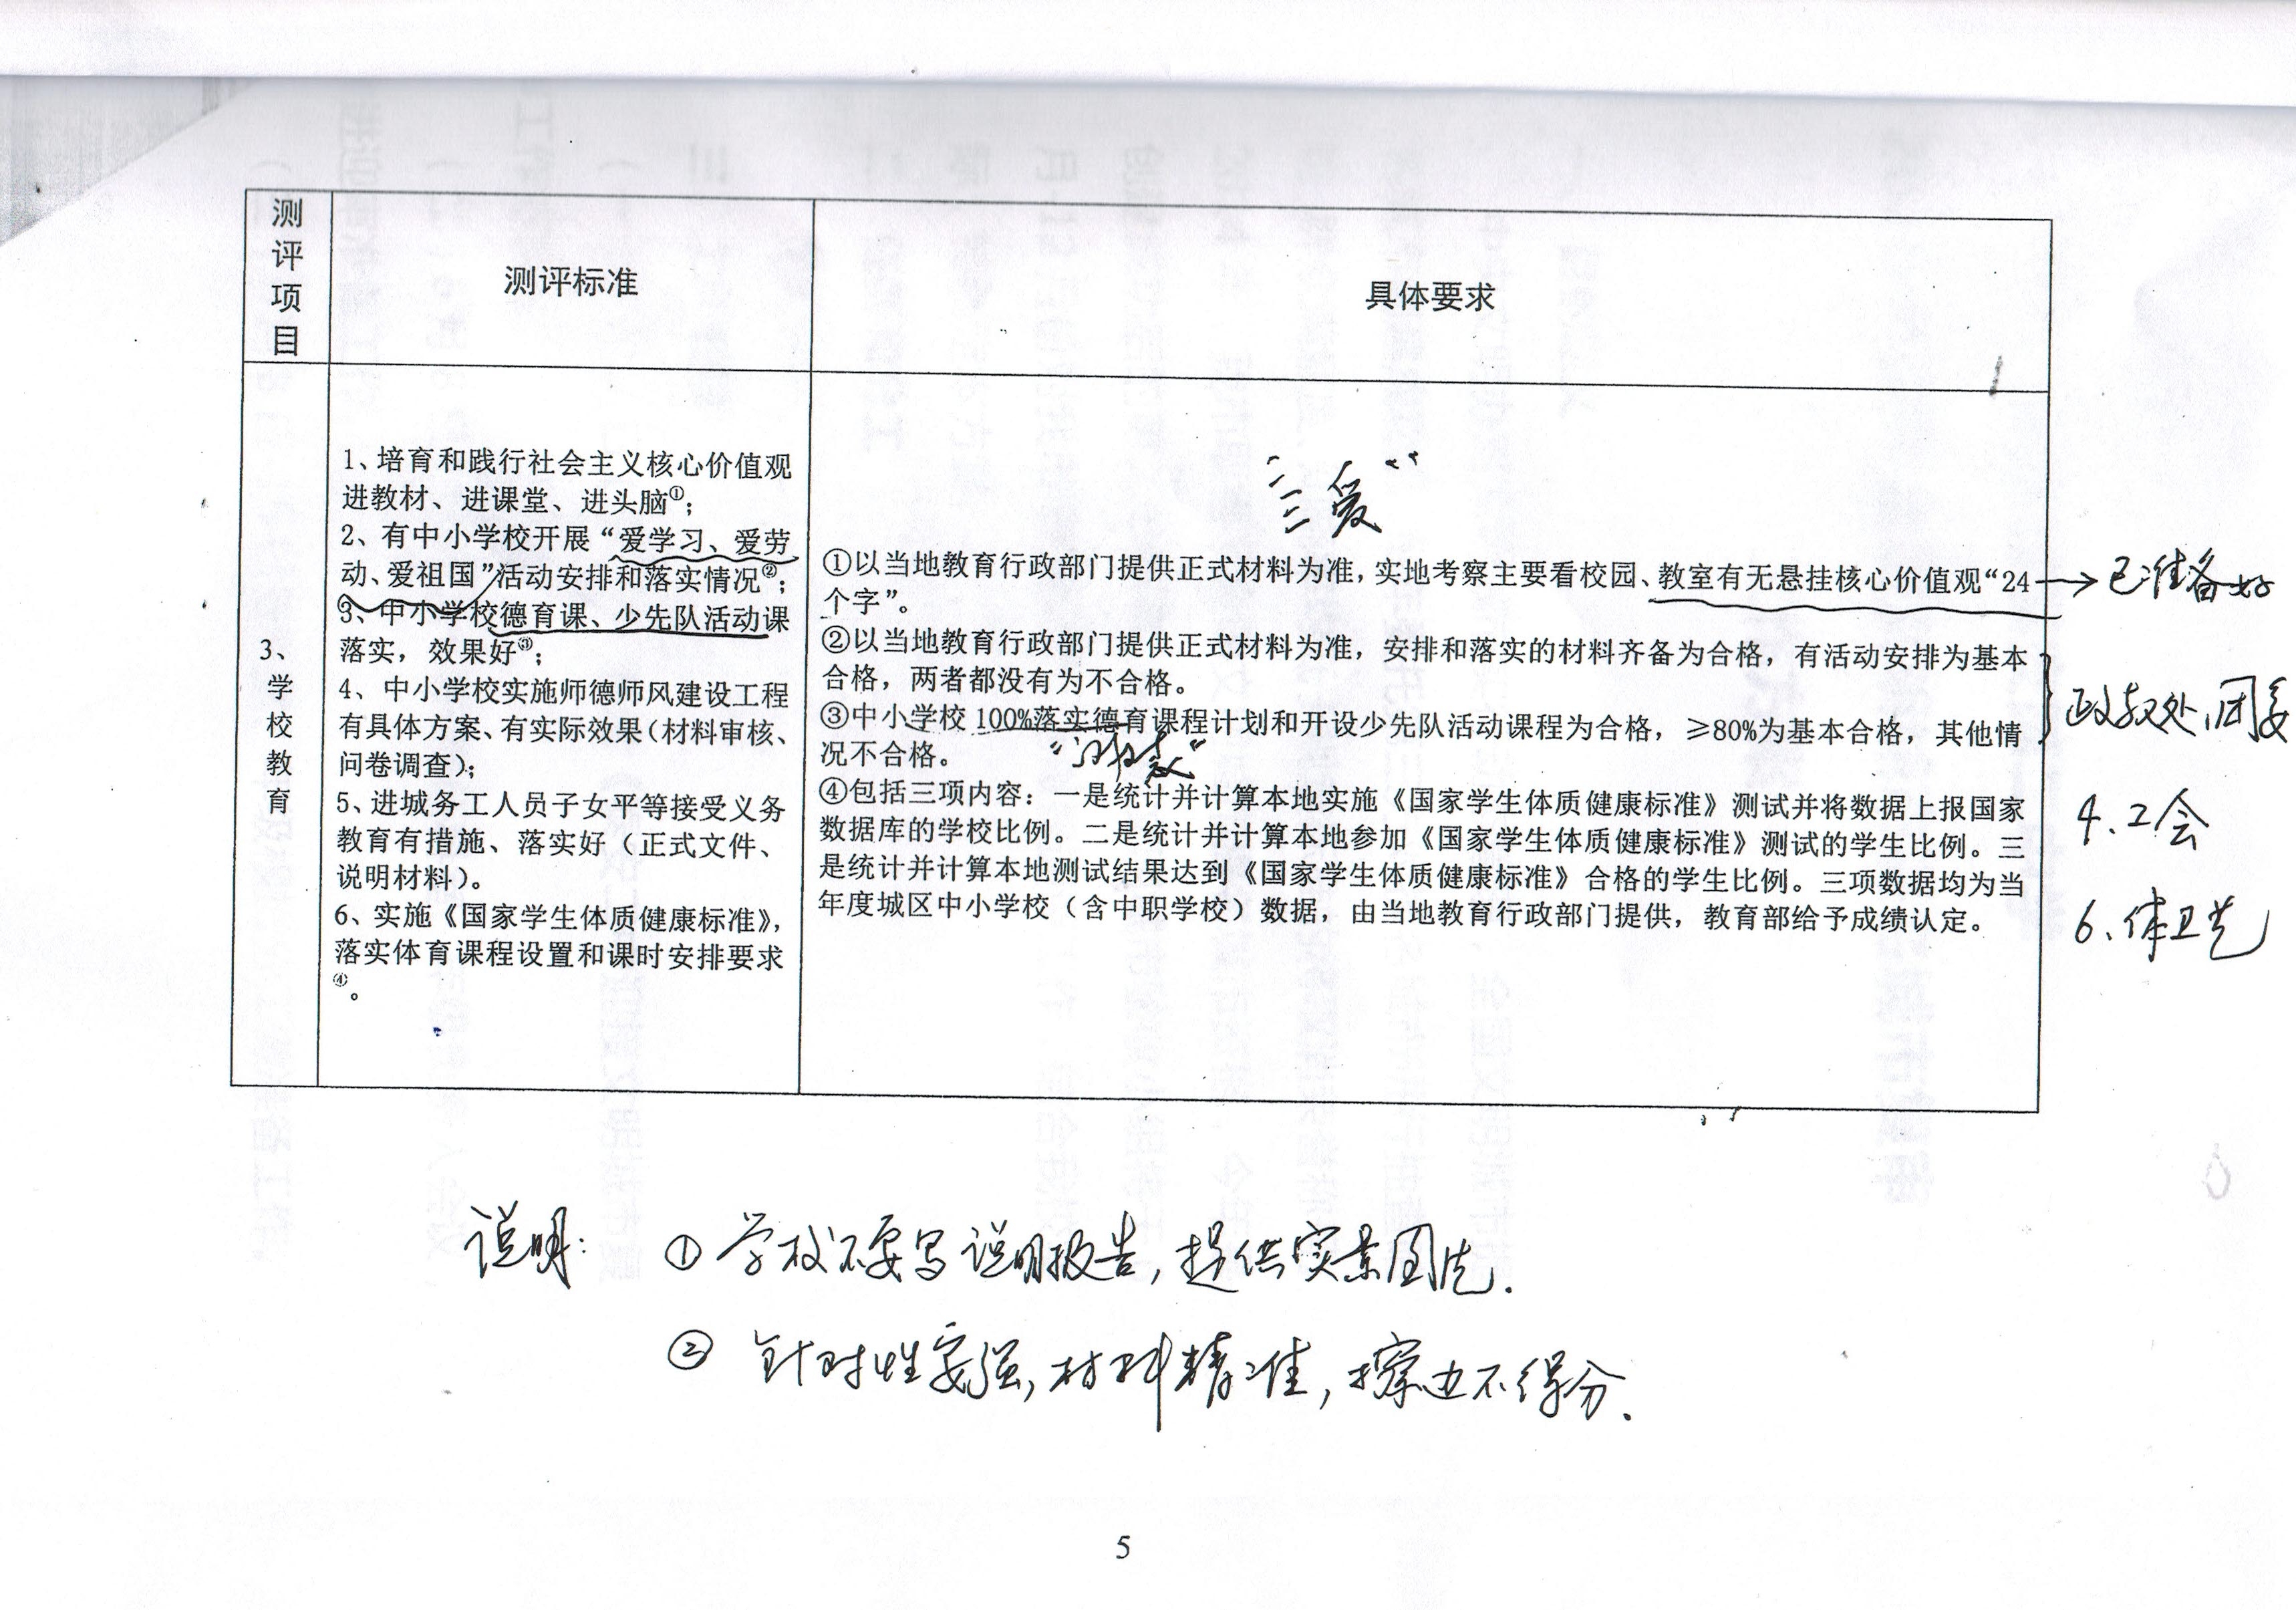 测评项目
测评标准
具体要求
3、学校教育
1、培育和践行社会主义核心价值观
进教材、进课堂、进头脑①；
2、有中小学校开展“爱学习、爱劳
动、爱祖国”活动安排和落实情况②；
3、中小学校德育课、少先队活动课
落实，效果好③；
4、中小学校实施师德师风建设工程
有具体方案、有实际效果（材料审核、
问卷调查）；
5、进城务工人员子女平等接受义务
教育有措施、落实好（正式文件、
说明材料）。
6、实施《国家学生体质健康标准》，
落实体育课程设置和课时安排要求
④。
“三爱”
①以当地教育行政部门提供正式材料为准，实地考察主要看校园、教室有无悬挂核心价值观“24
个字”。
②以当地教育行政部门提供正式材料为准，安排和落实的材料齐备为合格，有活动安排为基本
合格，两者都没有为不合格。
③中小学校 100%落实德育课程计划和开设少先队活动课程为合格，≥80%为基本合格，其他情
况不合格。
④包括三项内容：一是统计并计算本地实施《国家学生体质健康标准》测试并将数据上报国家
数据库的学校比例。二是统计并计算本地参加《国家学生体质健康标准》测试的学生比例。三
是统计并计算本地测试结果达到《国家学生体质健康标准》合格的学生比例。三项数据均为当
年度城区中小学校（含中职学校）数据，由当地教育行政部门提供，教育部给予成绩认定。
→已准备好
政教处、团委
4、工会
6、体卫艺
说明：①学校不要写说明报告，提供实景图片.
②针对性要强，材料精准，擦边不得分.
5